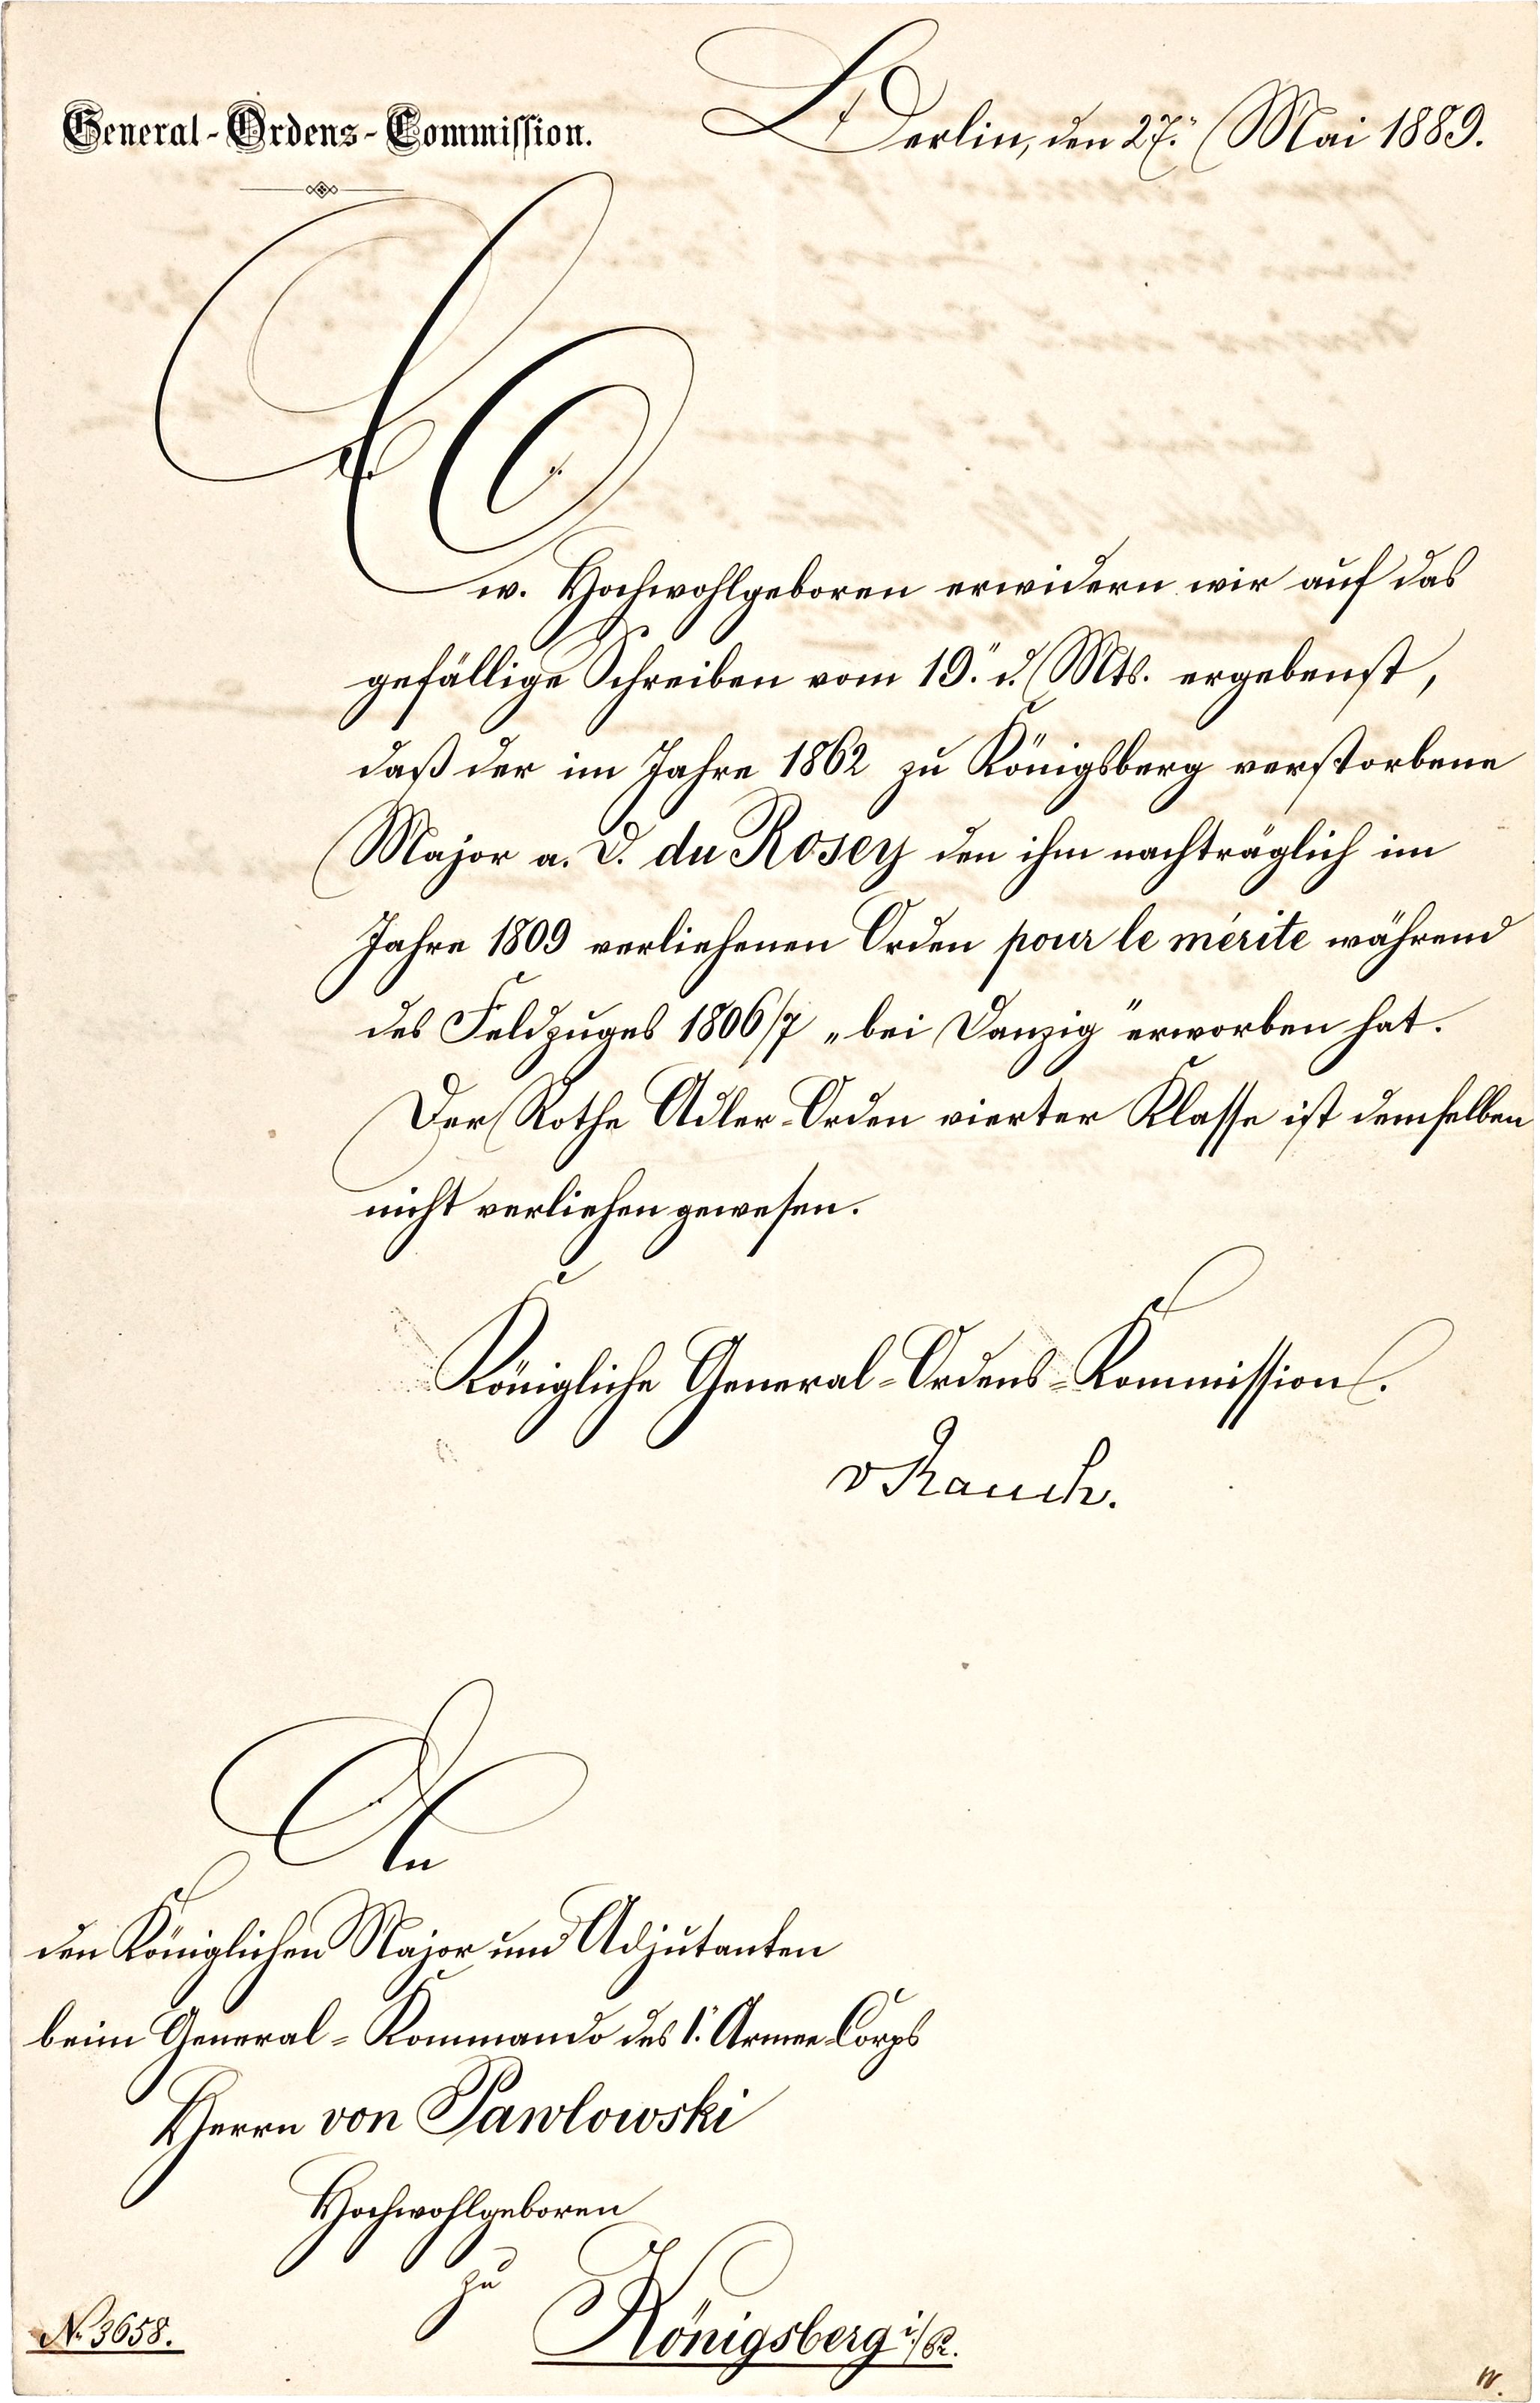 General-Ordens-Commission.
Berlin, den 27. Mai 1889.
Ew. Hochwohlgeboren erwidern wir auf das
gefällige Schreiben vom 19. d. Mts. ergebenst,
daß der im Jahre 1862 zu Königsberg verstorbene
Major a. D. du Rosey den ihm nachträglich im
Jahre 1809 verliehenen Orden pour le mérite während
des Feldzuges 1806/7 „bei Danzig" erworben hat.
Der Rothe Adler-Orden vierter Klasse ist demselben
nicht verliehen gewesen.
Königliche General-Ordens-Kommission.
v Rauch.
An
den Königlichen Major und Adjutanten
beim General-Kommando des 1. Armee Corps
Herrn von Pawlowski
Hochwohlgeboren
zu
Königsberg i/Pr.
N. 3658.
W.